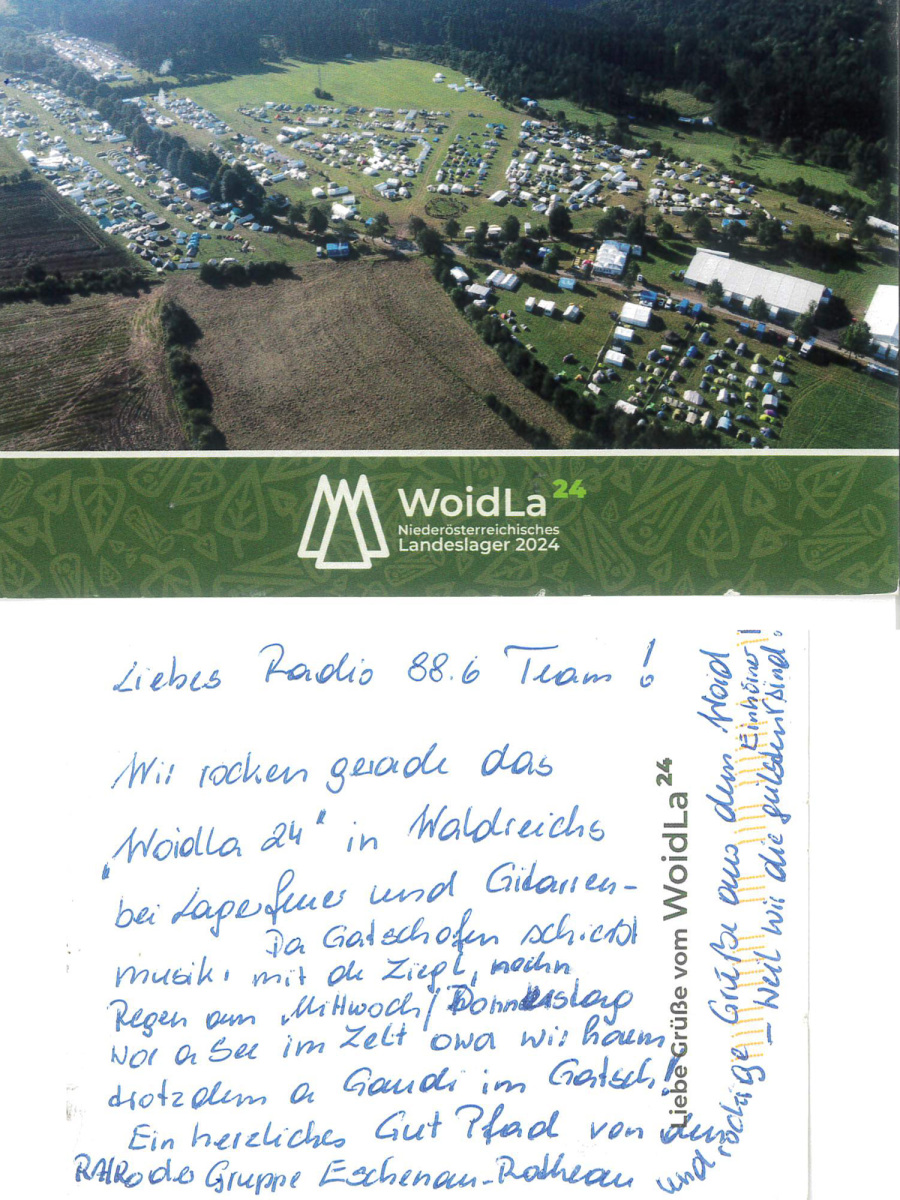 WoidLa24
Niederösterreichisches
Landeslager 2024
Liebes Radio 88.6 Team!
Wir rocken gerade das
„Woidla 24" in Waldreichs
bei Lagerfeuer und Gitarren-
Da Gatschofen schiebt
musik. mit de Ziegl, nochn
Regen am Mittwoch/Donnerstag
wor a See im Zelt owa wir haem
trotzdem a Gaudi im Gatsch!
Ein herzliches Gut Pfad von den
RA/Ro der Gruppe Eschenau-Rotheau
und rockige Grüße aus dem Woid
_ weil wir die geilsten Einhörner sind!
Liebe Grüße vom WoidLa24